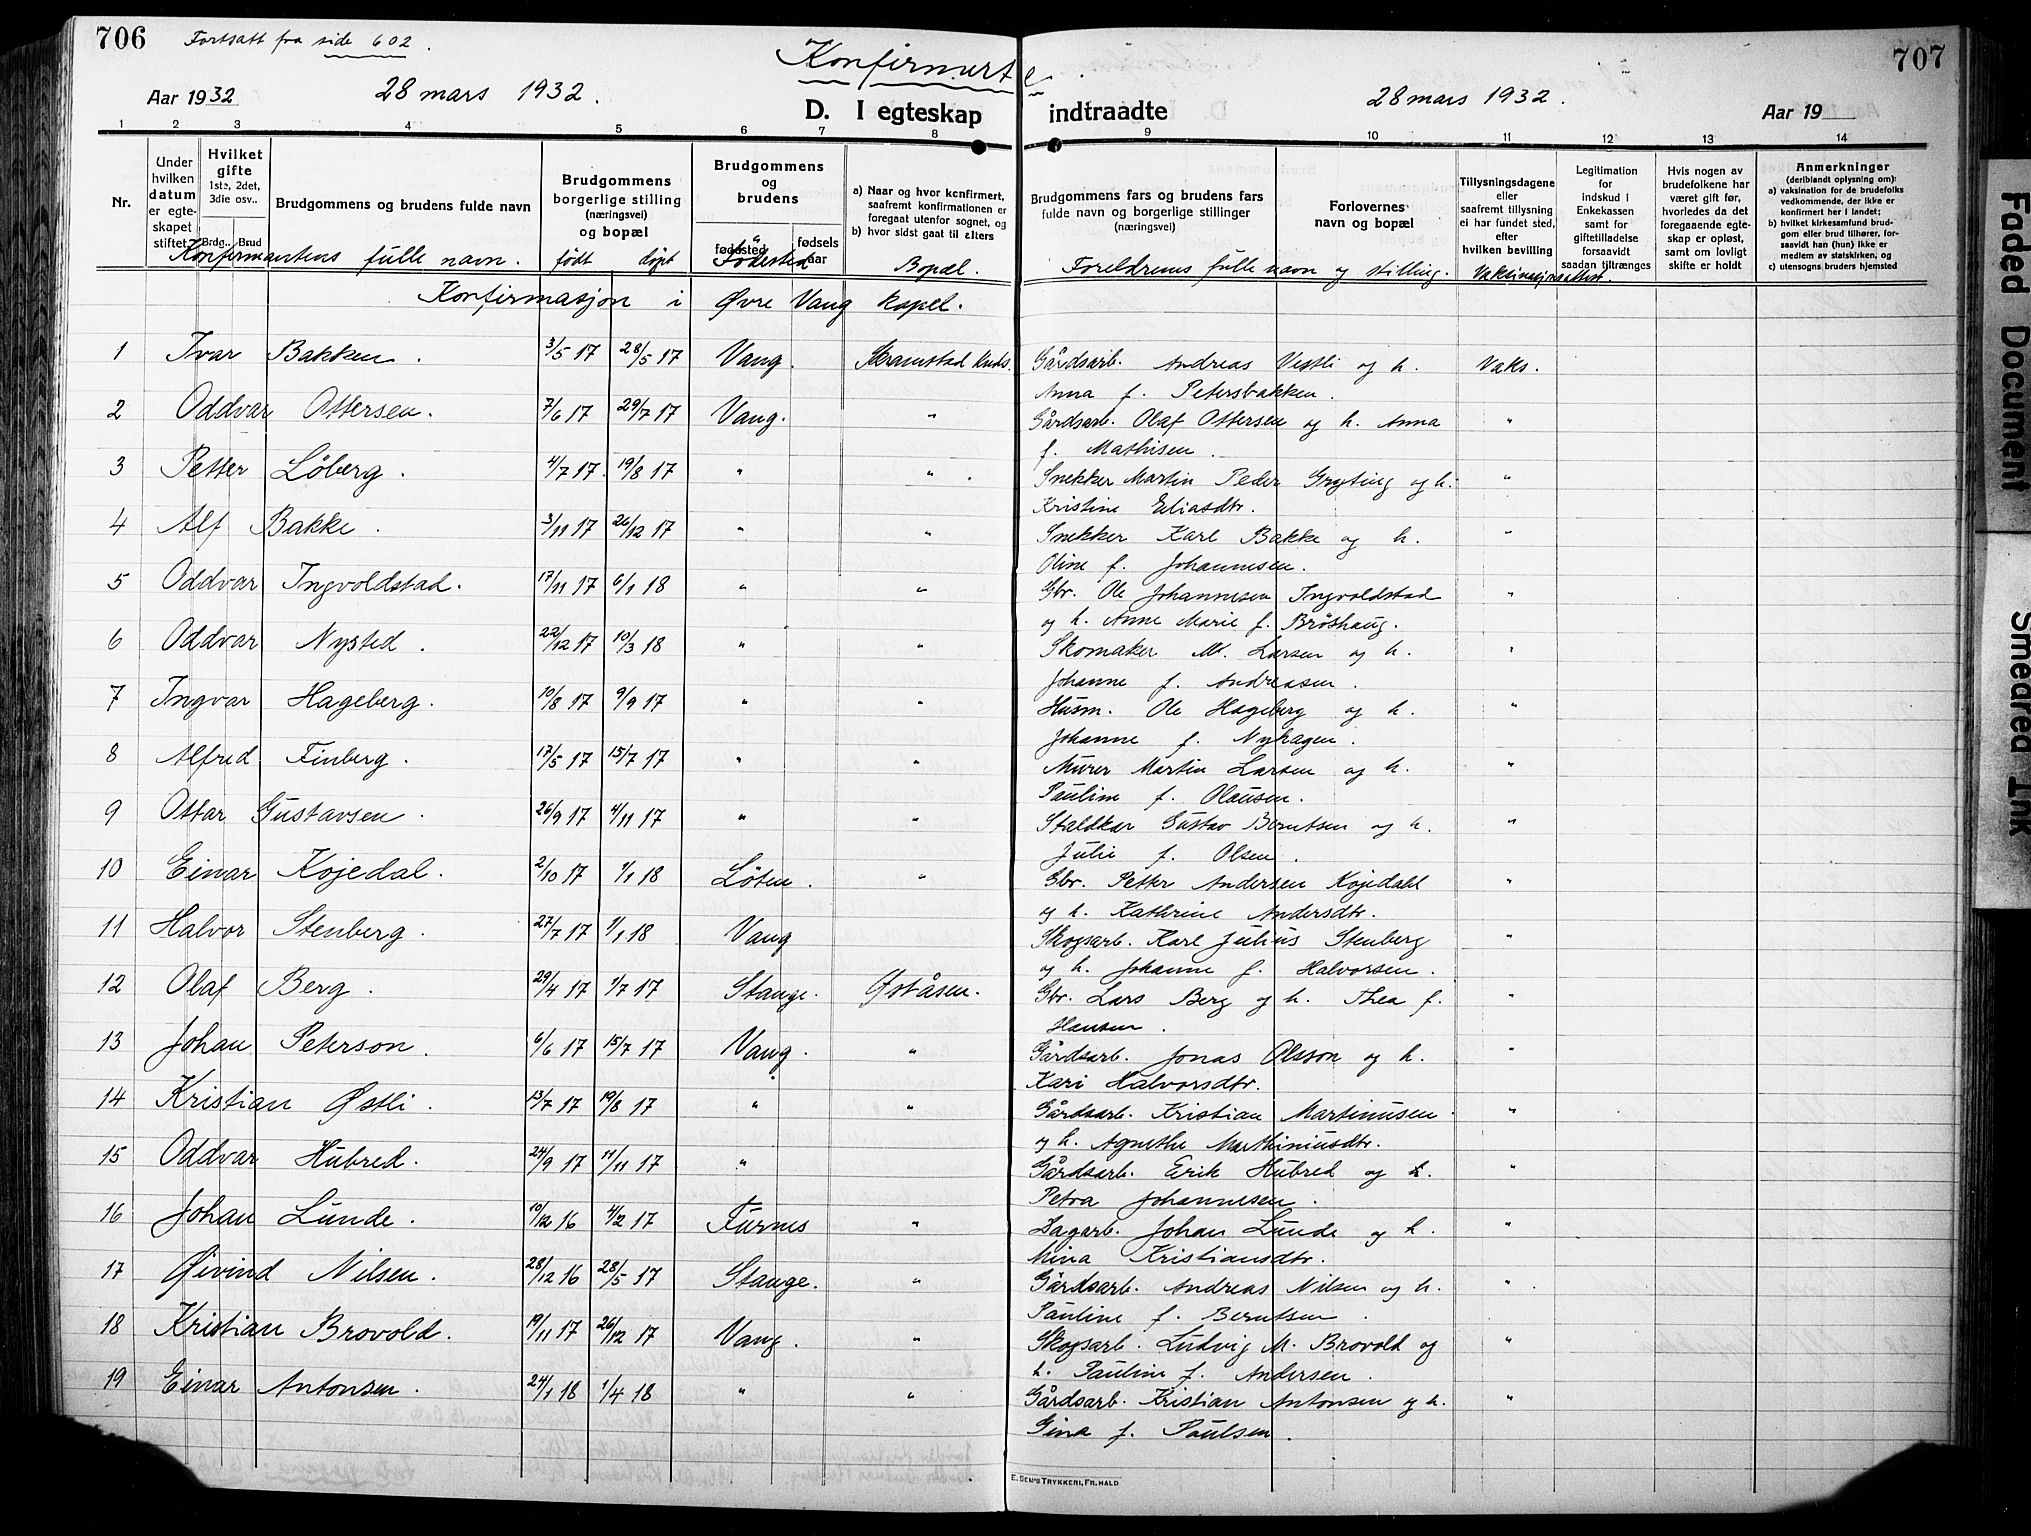 706 Fortsatt fra side 602.
Konfirmerte
707
Aar 1932 28 mars 1932.
D. I egteskap indtraadte
28 mars 1932. Aar 19
1 2 3 4 5 6 7 8 9 10 11 12 13 14
Nr.
Under hvilken datum er egteskapet stiftet
Hvilket gifte 1ste, 2det, 3die osv..
Brdg.. Brud
Brudgommens og brudens fulde navn
Brudgommens borgerlige stilling (næringsvei) og bopæl
Brudgommens og brudens
fødested
fødselsaar
a) Naar og hvor konfirmert, saafremt konfirmationen er foregaat utenfor sognet, og
b) hvor sidst gaat til alters
Brudgommens fars og brudens fars fulde navn og borgerlige stillinger (næringsvei)
Forlovernes navn og bopæl
Tillysningsdagene eller saafremt tillysning ei har fundet sted, efter hvilken bevilling
Legitimation for Indskud i Enkekassen samt for giftetilladelse forsaavidt saadan tiltrænges
Hvis nogen av brudefolkene har været gift før, hvorledes da det foregaaende egteskap er opløst, samt om lovligt skifte er holdt
Anmerkninger (deriblandt oplysning om):
a) vaksination for de brudefolks vedkommende, der ikke er konfirmert her i landet;
b) hvilket kirkesamfund brudgom eller brud tilhører, forsaavidt han (hun) ikke er medlem av statskirken, og
c) utensogns bruders hjemsted
Konfirmantens fulle navn. født døpt Fødested Bopæl. Foreldrenes fulle navn og stilling. Vaksinasjonsattest.
Konfirmasjon i Øvre Vang kapel.
1 Ivar Bakken. 3/5 17 28/5 17 Vang. Skramstad kreds. Gårdsarb. Andreas Vestli og h. Vaks.
Anna f. Petersbakken.
2 Oddvar Ottersen. 7/6 17 29/7 17 Vang. " Gårdsarb. Olaf Ottersen og h. Anna "
f. Mathisen.
3 Petter Löberg. 4/7 17. 19/8 17 " " Snekker Martin Peder Gryting og h. "
Kristine Eliasdtr.
4 Alf Bakke. 3/11 17 26/12 17 " " Snekker Karl Bakke og h. "
Oline f. Johannesen.
5 Oddvar Ingvoldstad. 17/11 17 6/1 18 " " Gbr. Ole Johannesen Ingvoldstad "
og h. Anne Marie f. Bröshaug.
6 Oddvar Nysted. 22/12 17 10/3 18 " " Skomaker M. Larsen og h. "
Johanne f. Andreasen.
7 Ingvar Hageberg. 10/8 17 9/9 17 " " Husm. Ole Hageberg og h. "
Johanne f. Nyhagen.
8 Alfred Finberg. 17/5 17 15/7 17 " " Murer Martin Larsen og h. "
Pauline f. Olausen.
9 Ottar Gustavsen. 26/9 17 4/11 17 " " Staldkar Gustav Berntsen og h. "
Julie f. Olsen.
10 Einar Kojedal. 2/10 17 1/1 18 Löten. " Gbr. Petter Andersen Kojedahl "
og h. Kathrine Andersdtr.
11 Halvor Stenberg. 27/7 17 1/1 18 Vang Skogsarb. Karl Julius Stenberg "
og h. Johanne f. Halvorsen.
12 Olaf Berg. 29/4 17 1/7 17 Stange. Øståsen. Gbr. Lars Berg og h. Thea f. "
Hansen.
13 Johan Peterson. 6/6 17 15/7 17 Vang. " Gårdsarb. Jonas Olsson og h. "
Kari Halvorsdtr.
14 Kristian Østli. 13/7 17 19/8 17 " " Gårdsarb. Kristian Martinusen "
og h. Agnethe Marthiniusdtr.
15 Oddvar Hubred. 24/9 17 11/11 17 " Gårdsarb. Erik Hubred og h. "
Petra Johannesen.
16 Johan Lunde. 10/12 16 4/2 17 Furnes " Dagarb. Johan Lunde og h. "
Mina Kristiansdtr.
17 Øivind Nilsen. 28/12 16 28/5 17 Stange. " Gårdsarb. Andreas Nilsen og h. "
Pauline f. Berntsen.
18 Kristian Brovold. 19/11 17 26/12 17 Vang. " Skogsarb. Ludvig M. Brovold og "
h. Pauline f. Andersen.
19 Einar Antonsen. 24/1 18 1/4 18 " " Gårdsarb. Kristian Antonsen og h. "
Gina f. Paulsen.
E. SEM'S TRYKKERI, FR.HALD
Faded Document
Smeared Ink